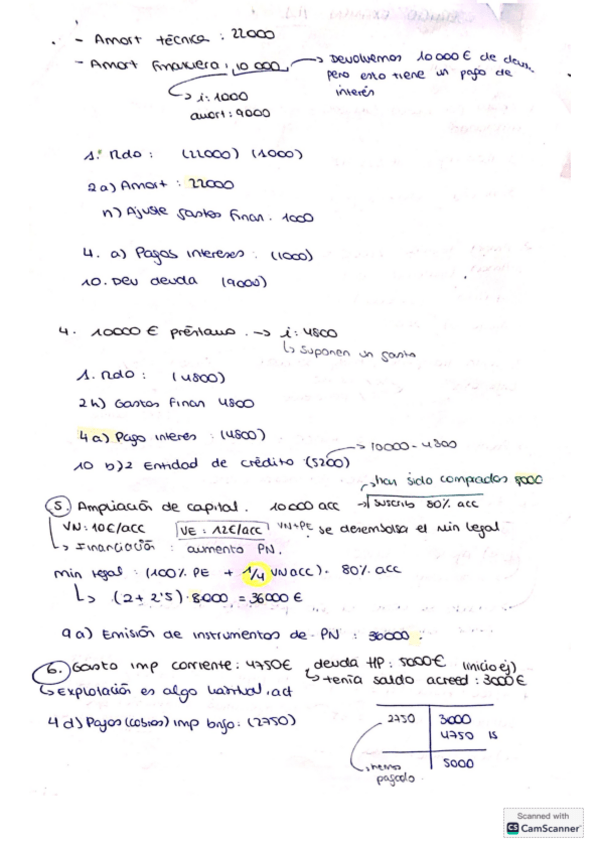 - Amort técnica : 22000
- Amort financiera : 10 000 → Devolvemos 10000 € de deu
pero esto tiene un pago de
interés
↳ i: 1000
amort: 9000
1. Rdo : (22000) (1000)
2a) Amort : 22000
n) Ajuste gastos finan. 1000
4. a) Pagos intereses : (1000)
10. Dev deuda (9000)
4. 10000 € préstamo → i: 4800
↳ suponen un gasto
1. Rdo : (4800)
2h) Gastos Finan 4800
4a) Pago interés : (4800)
→ 10000 - 4800
10 b)2 Entidad de crédito (5200)
→ han sido comprados 8000
5. Ampliación de capital. 10000 acc → suscrib 80% acc
VN: 10€/acc VE = 12€/acc VN+PE se desembolsa el min legal
↳ Financiación : aumento PN.
min legal : (100% PE + 1/4 VN acc). 80% acc
↳ (2 + 2'5) · 8000 = 36000 €
9a) Emisión de instrumentos de PN : 36000.
6. Gasto imp corriente : 4750€, deuda HP : 5000€ (inicio ej)
↳ tenía saldo acreed : 3000€
↳ Explotación es algo habitual, act
4d) Pagos (cobros) imp bnfo : (2750)
2750 3000
4750 IS
5000
hemos
pagado.
Scanned with
CS CamScanner